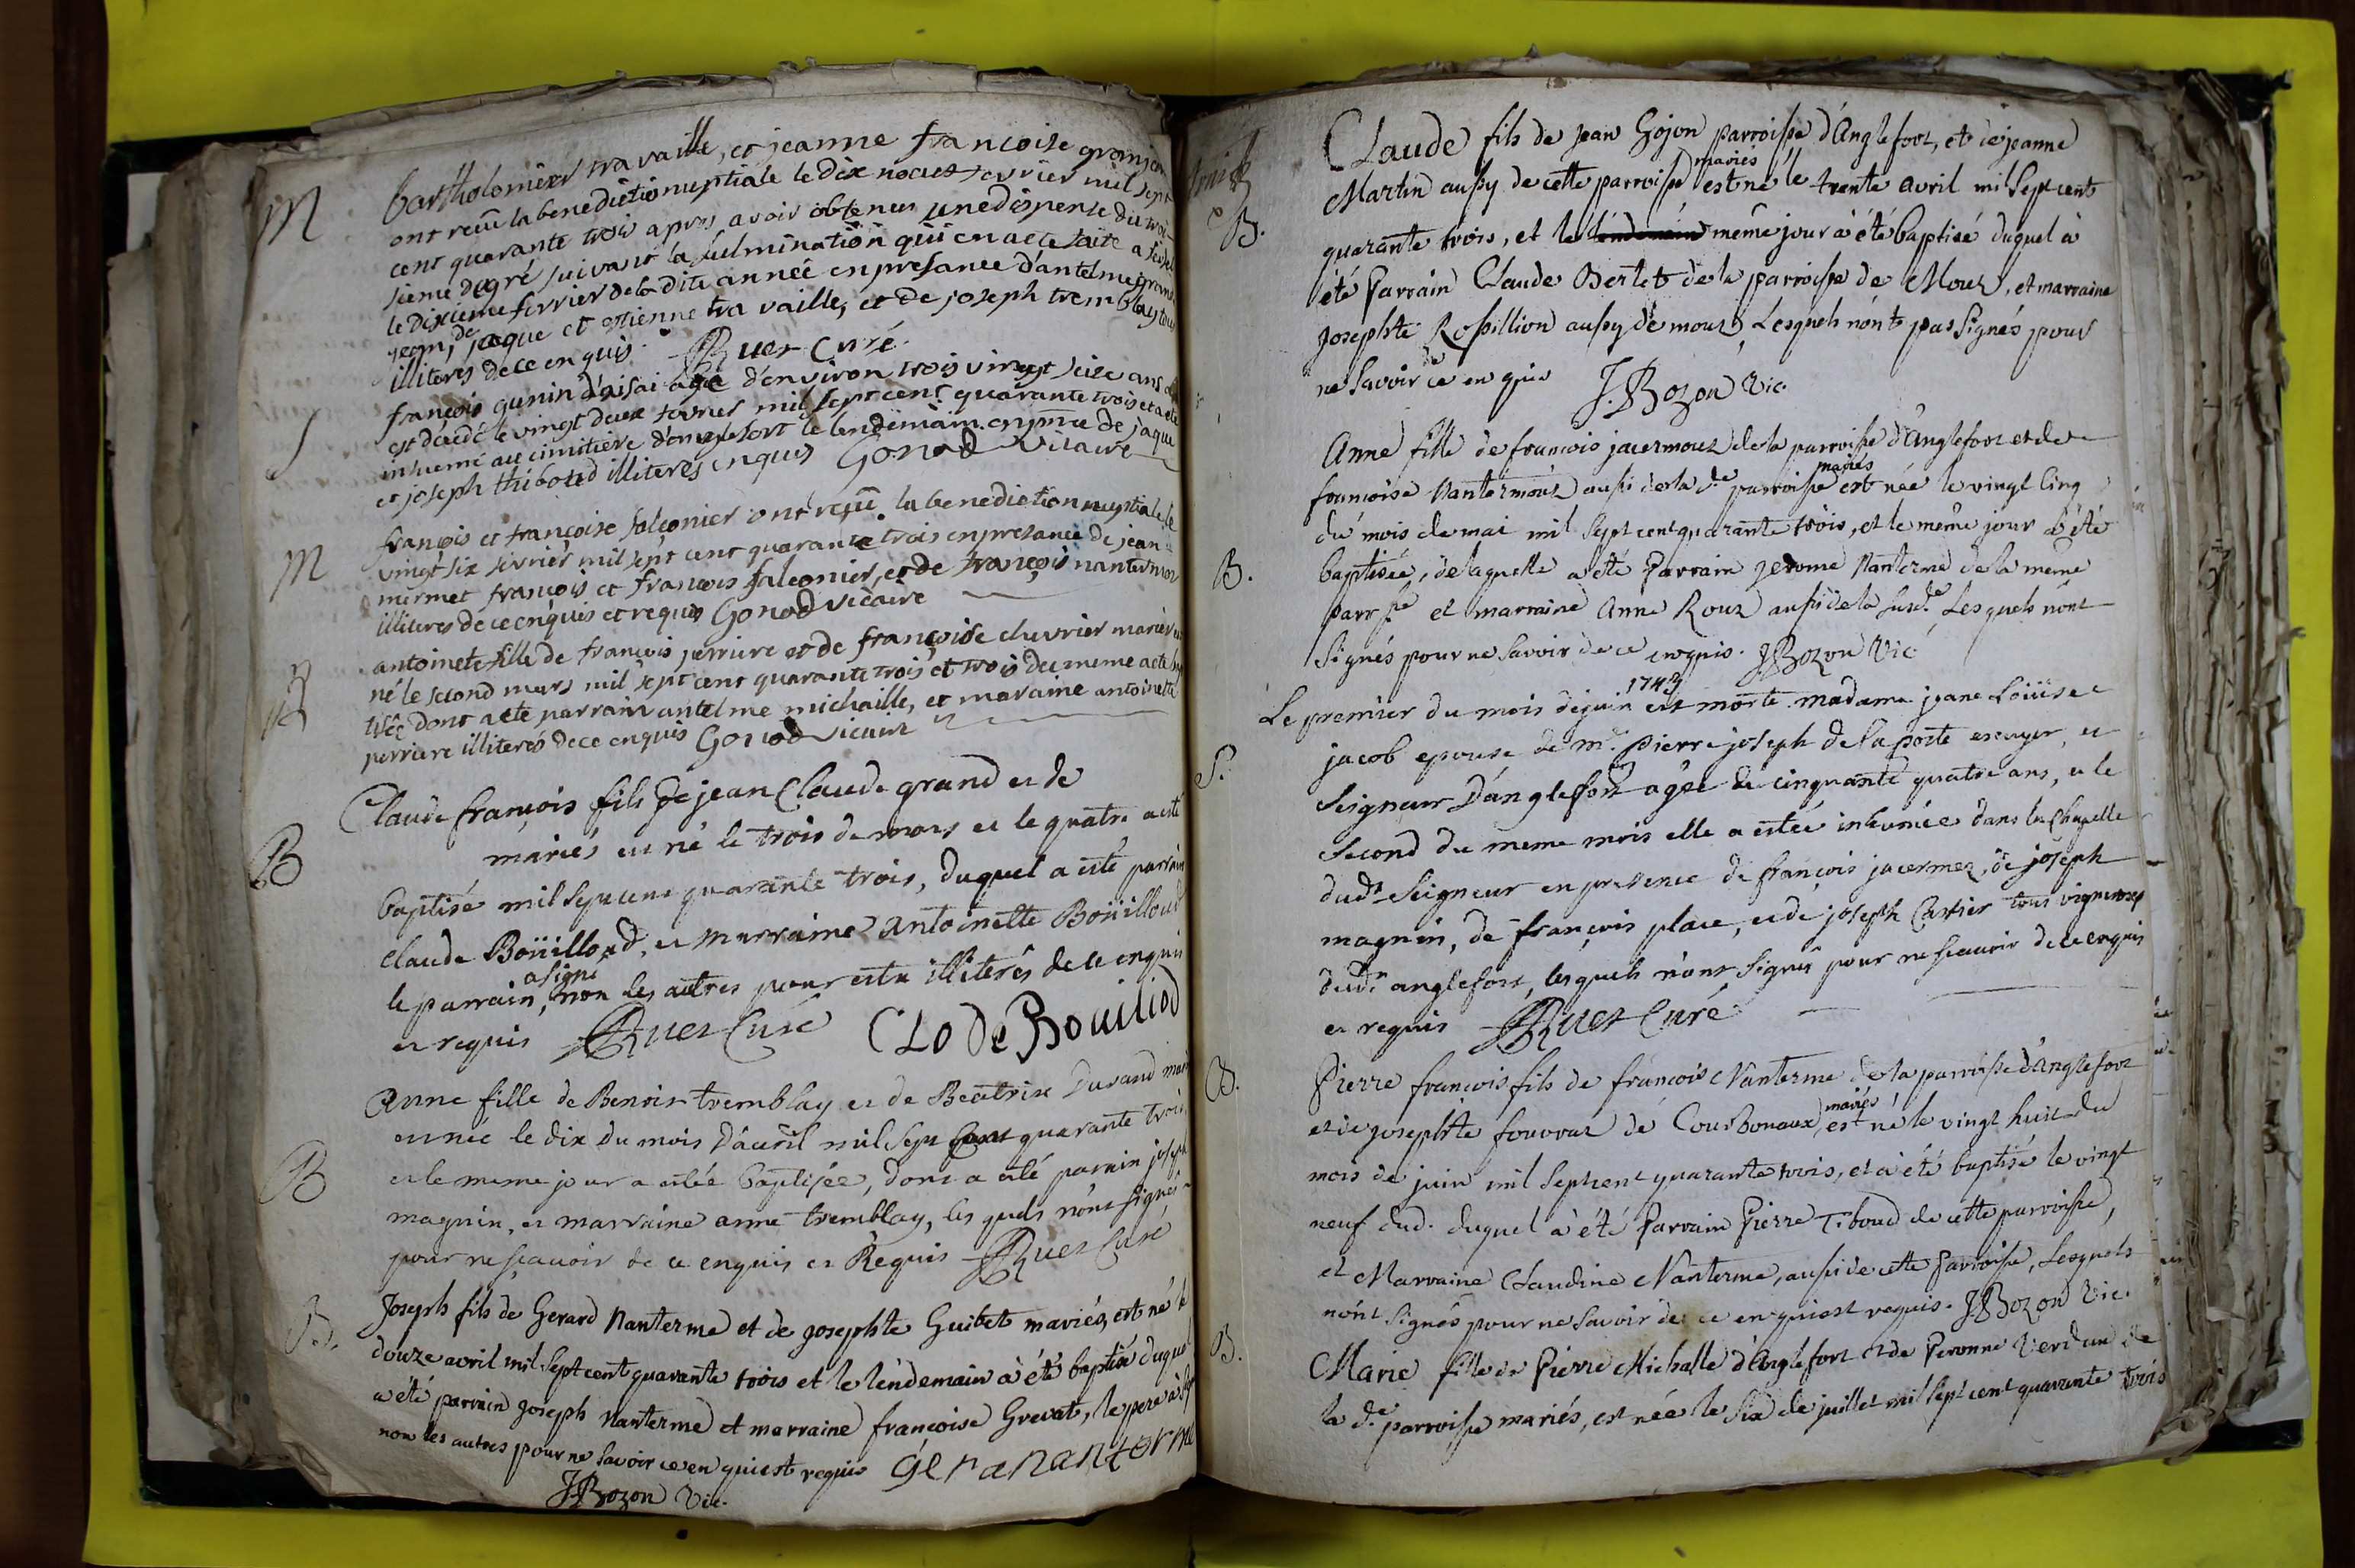 M
Bartholomier travaille, et jeanne francoise granjean
ont reçû la benediction nuptiale le dix neuf fevrier mil sept
cent quarante trois apres avoir obtenu une dispense du troi-
sieme degré suivant la fulmination qui en a ete faite a
le dixieme ferrier de la dite année en presance d'antelme grand
jean, de jaque et etienne travaille, et de joseph tremblay tous
illiterés de ce enquis. Ruet Curé
S
françois gunin d'aisai agé d'environ trois vingt seize ans
est décédé le vingt deux fevrier mil sept cent quarante trois et a ete
inhumé au cimitiere d'anglefort le lendemain en pnce de jaque
et joseph thiboud illiteres enquis Gonod vicaire
M
françois et françoise falconier ont reçû la benediction nuptiale le
vingt six fevrier mil sept cent quarante trois en presance de jean
mermet françois et francois falconier, et de françois nantermoz
illiteres de ce enquis et requis Gonod vicaire
B
antoinete fille de françois perriere et de françoise chevrier mariés
né le second mars mil sept cent quarante trois et trois du meme a ete bap
tisée dont a ete parrain antelme michaille, et maraine antoinette
perriere illiterés de ce enquis Gonod vicaire
B
Claude françois fils de jean Claude grand et de
mariés est né le trois de mars et le quatre a esté
baptisé mil sept cent quarante trois, duquel a esté parrain
claude Boüilloud, et marraine antoinette Boüilloud
le parrain, a signé non les autres pour estre illiterés de ce enquis
et requis Ruet Curé CLO De Bouiliod
B
Anne fille de Benoit tremblay et de Beatrix Durand mariés
est née le dix du mois d'avril mil sept cent quarante trois
et le meme jour a estée baptisée, dont a esté parrain joseph
magnin, et marraine anne tremblay, les quels n'ont signés
pour ne sçavoir de ce enquis et Requis Ruet Curé
B.
Joseph fils de Gerard Nanterme et de josephte Guibet mariés, est né le
douze avril mil sept cent quarante trois et le lendemain à été baptisé duquel
a été parrain joseph Nanterme et marraine françoise Grevat, le pere à signé
non les autres pour ne savoir ce en quiest requis Géra nanterme
J. Bozon Vic.
B.
Claude fils de jean Gojon parroisse d'Anglefort, et de jeanne
Martin aussy de cette parroisse mariés est né le trente avril mil sept cent
quarante trois, et le lendemain même jour à été baptisé duquel à
été Parrain Claude Berlet de la parroisse de Mouz, et marraine
josephte Rossillion aussy de mouz, Lesquels n'onts pas signés pour
ne savoir de ce en quis J. Bozon Vic.
B.
Anne fille de francois jacermouz de la parroisse d'Anglefort et de
francoise Nantermouz aussi de la de parroisse mariés est née le vingt cinq
du mois de mai mil sept cent quarante trois, et le même jour à été
baptisée, de laquelle a été Parrain Jerome Nanterme de la même
parrsse et marraine Anne Roux aussi de la susde. Lesquels n'ont
signés pour ne savoir de ce enquis. J Bozon Vic.
S.
Le premier du mois de juin 1743 est morte madame jeane Loüise
jacob epouse de mr. pierre joseph de la porte escuyer, et
Seigneur D'anglefort agée de cinquante quatre ans, et le
second du meme mois elle a estée inhumée dans la Chapelle
dudt Seigneur en presence de françois jacermoz, de joseph
magnin, de françois place, et de joseph Cartier tous vignerons
dudt anglefort, lesquels n'ont signé pour ne sçavoir de ce enquis
et requis Ruet Curé
B.
Pierre francois fils de francois Nanterme de la parroisse d'Anglefort
et de josephte fouvraz de Courbonaux, mariés est né le vingt huit du
mois de juin mil sept cent quarante trois, et à été baptisé le vingt
neuf dud. duquel à été Parrain Pierre Tiboud de cette parroisse,
et Marraine Claudine Nanterme, aussi de cette Parroisse, Lesquels
n'ont signés pour ne savoir de ce en quiest requis. J Bozon Vic.
B.
Marie fille de Pierre Michalle d'Anglefort et de Peronne Verdun de
la de. parroisse mariés, est née le six de juillet mil sept cent quarante trois